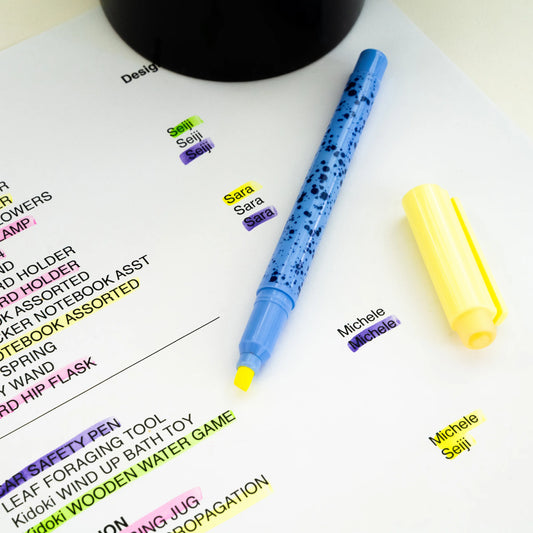 Design
Seiji
Seiji
Seiji
Sara
Sara
Sara
OWERS
LAMP
HOLDER
HOLDER
ASSORTED
NOTEBOOK ASST
NOTEBOOK ASSORTED
SPRING
WAND
HIP FLASK
Michele
Michele
Michele
Seiji
CAR SAFETY PEN
LEAF FORAGING TOOL
Kidoki WIND UP BATH TOY
Kidoki WOODEN WATER GAME
JUG
PROPAGATION